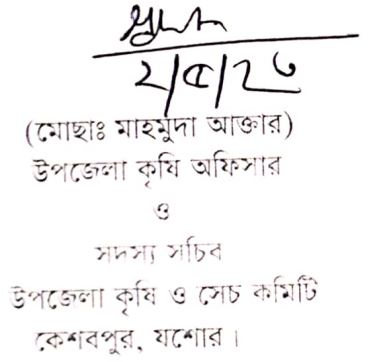 ২/৫/২৩
(মোছাঃ মাহমুদা আক্তার)
উপজেলা কৃষি অফিসার
ও
সদস্য সচিব
উপজেলা কৃষি ও সেচ কমিটি
কেশবপুর, যশোর।